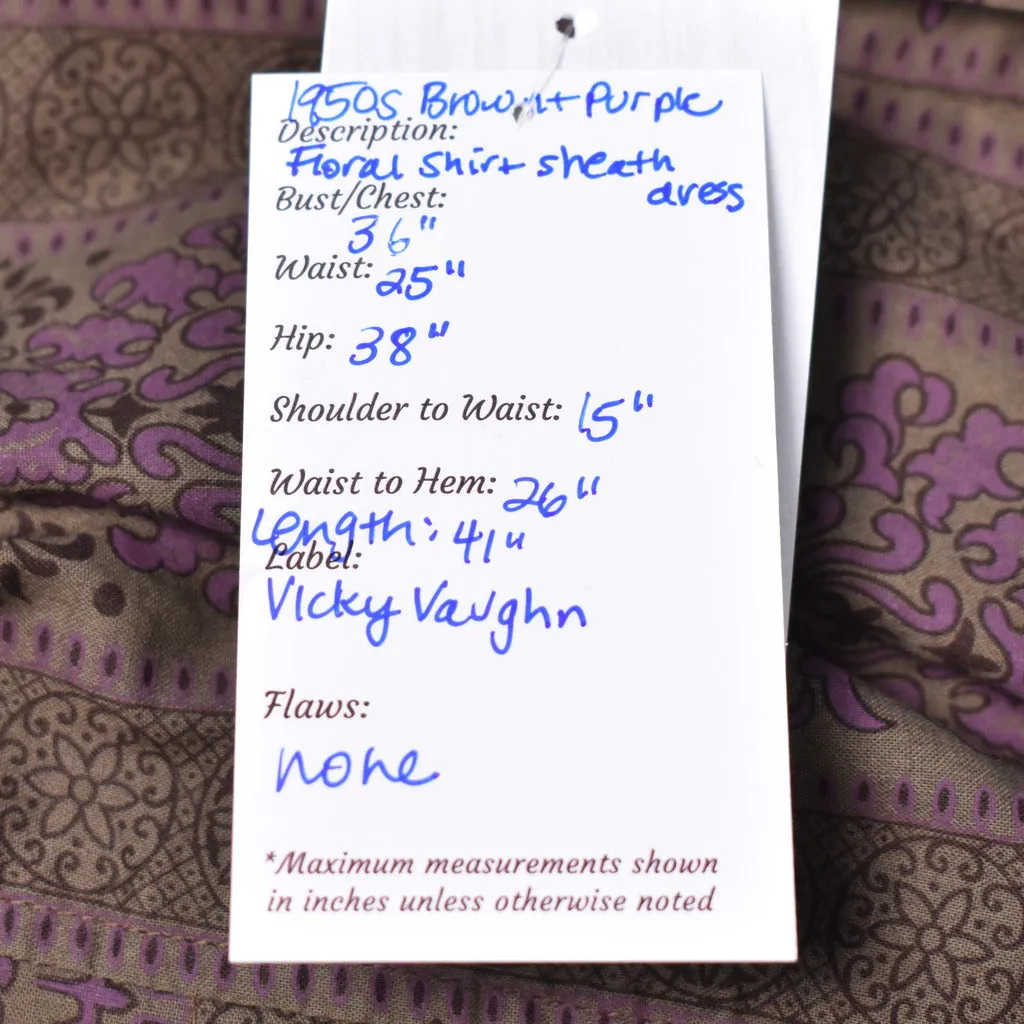 1950s Brown + Purple
Description:
Floral Shirt sheath
dress
Bust/Chest:
36"
Waist: 25"
Hip: 38"
Shoulder to Waist: 15"
Waist to Hem: 26"
Length: 41"
Label:
Vicky Vaughn
Flaws:
none
*Maximum measurements shown
in inches unless otherwise noted